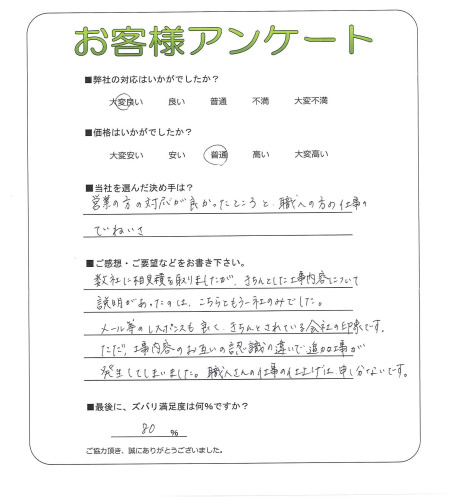 お客様アンケート
■弊社の対応はいかがでしたか?
大変良い 良い 普通 不満 大変不満
■価格はいかがでしたか?
大変安い 安い 普通 高い 大変高い
■当社を選んだ決め手は?
営業の方の対応が良かったところと、職人の方の仕事の
ていねいさ
■ご感想・ご要望などをお書き下さい。
数社に相見積を取りましたが、きちんとした工事内容について
説明があったのは、こちらともう一社のみでした。
メール等のレスポンスも良く、きちんとされている会社の印象です。
ただ、工事内容のお互いの認識の違いで追加工事が
発生してしまいました。職人さんの仕事の仕上げは申し分ないです。
■最後に、ズバリ満足度は何%ですか?
80 %
ご協力頂き、誠にありがとうございました。